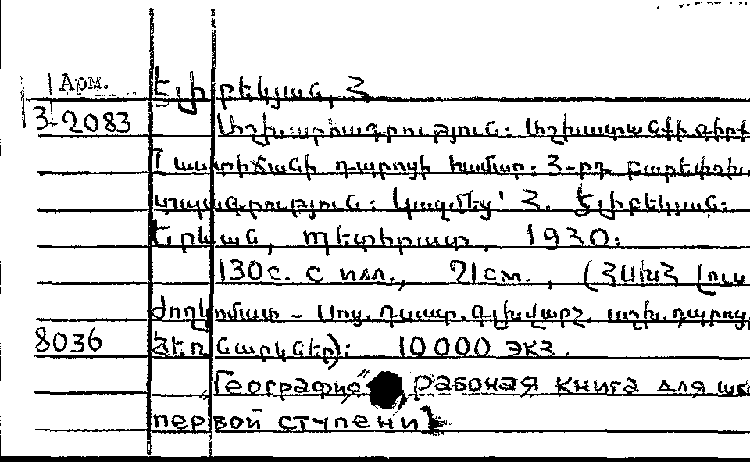 Арм.
Էլիբեկյան, Հ
3-2083
Աշխարհագրություն: Աշխատանքի գիրք
I աստիճանի դպրոցի համար: 3-րդ բարեփոխ.
տպագրություն: Կազմեց' Հ. Էլիբեկյան:
Երևան, Պետհրատ, 1930:
130с. с илл., 21см., (ՀՍԽՀ Լուս
ժողկոմատ - Սոց. դաստ. գլխվարչ. աշխ. դպրոց.
8036 ձեռնարկներ): 10000 экз.
"География", рабочая книга для шк
первой ступени]